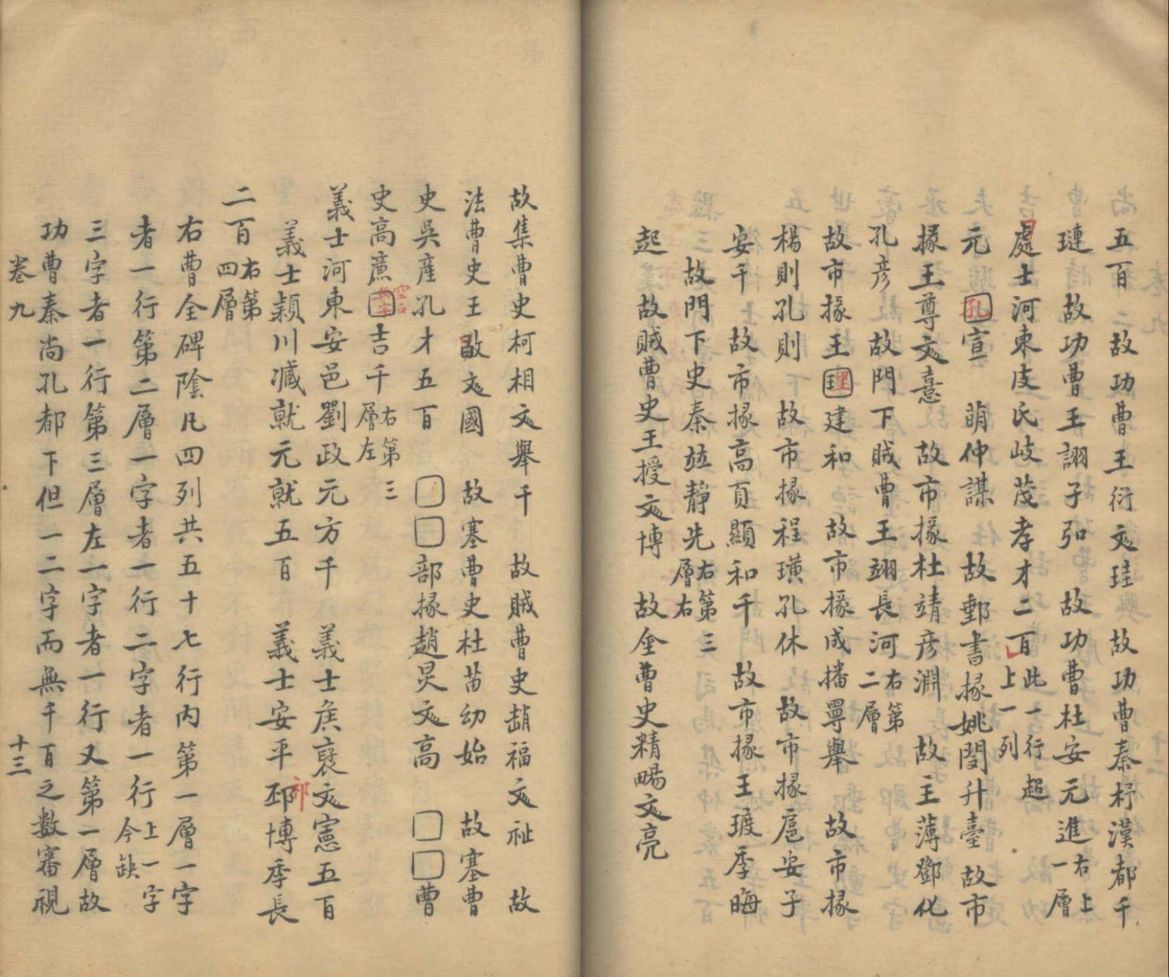 五百 故功曹王衍文珪 故功曹秦杼漢都千
璉 故功曹王詡子弘 故功曹杜安元進右上一層
處士河東皮氏岐茂孝才二百此一行超上一列
元 孔宣 萌仲謀 故郵書掾姚閔升臺 故市
掾王尊文憙 故市掾杜靖彥淵 故主薄鄧化
孔彥 故門下賊曹王翊長河右第二層
故市掾王理建和 故市掾成播曼舉 故市掾
楊則孔則 故市掾程璜孔休 故市掾扈安子
安千 故市掾高頁顯和千 故市掾王玻季晦
故門下史秦竝靜先右第三層右
起 故賊曹史王授文博 故金曹史精暘文亮
故集曹史柯相文舉千 故賊曹史趙福文祉 故
法曹史王敢文國 故塞曹史杜苗幼始 故塞曹
史吳產孔才五百 □□部掾趙炅文高 □□曹
史高廉□吉千右第三層左
義士河東安邑劉政元方千 義士侯褒文憲五百
義士穎川臧就元就五百 義士安平邳博季長
二百右第四層
右曹全碑陰凡四列共五十七行内第一層一字
者一行第二層一字者一行二字者一行上一字今缺
三字者一行第三層左一字者一行又第一層故
功曹秦尚孔都下但一二字而無千百之數審視
卷九 十三